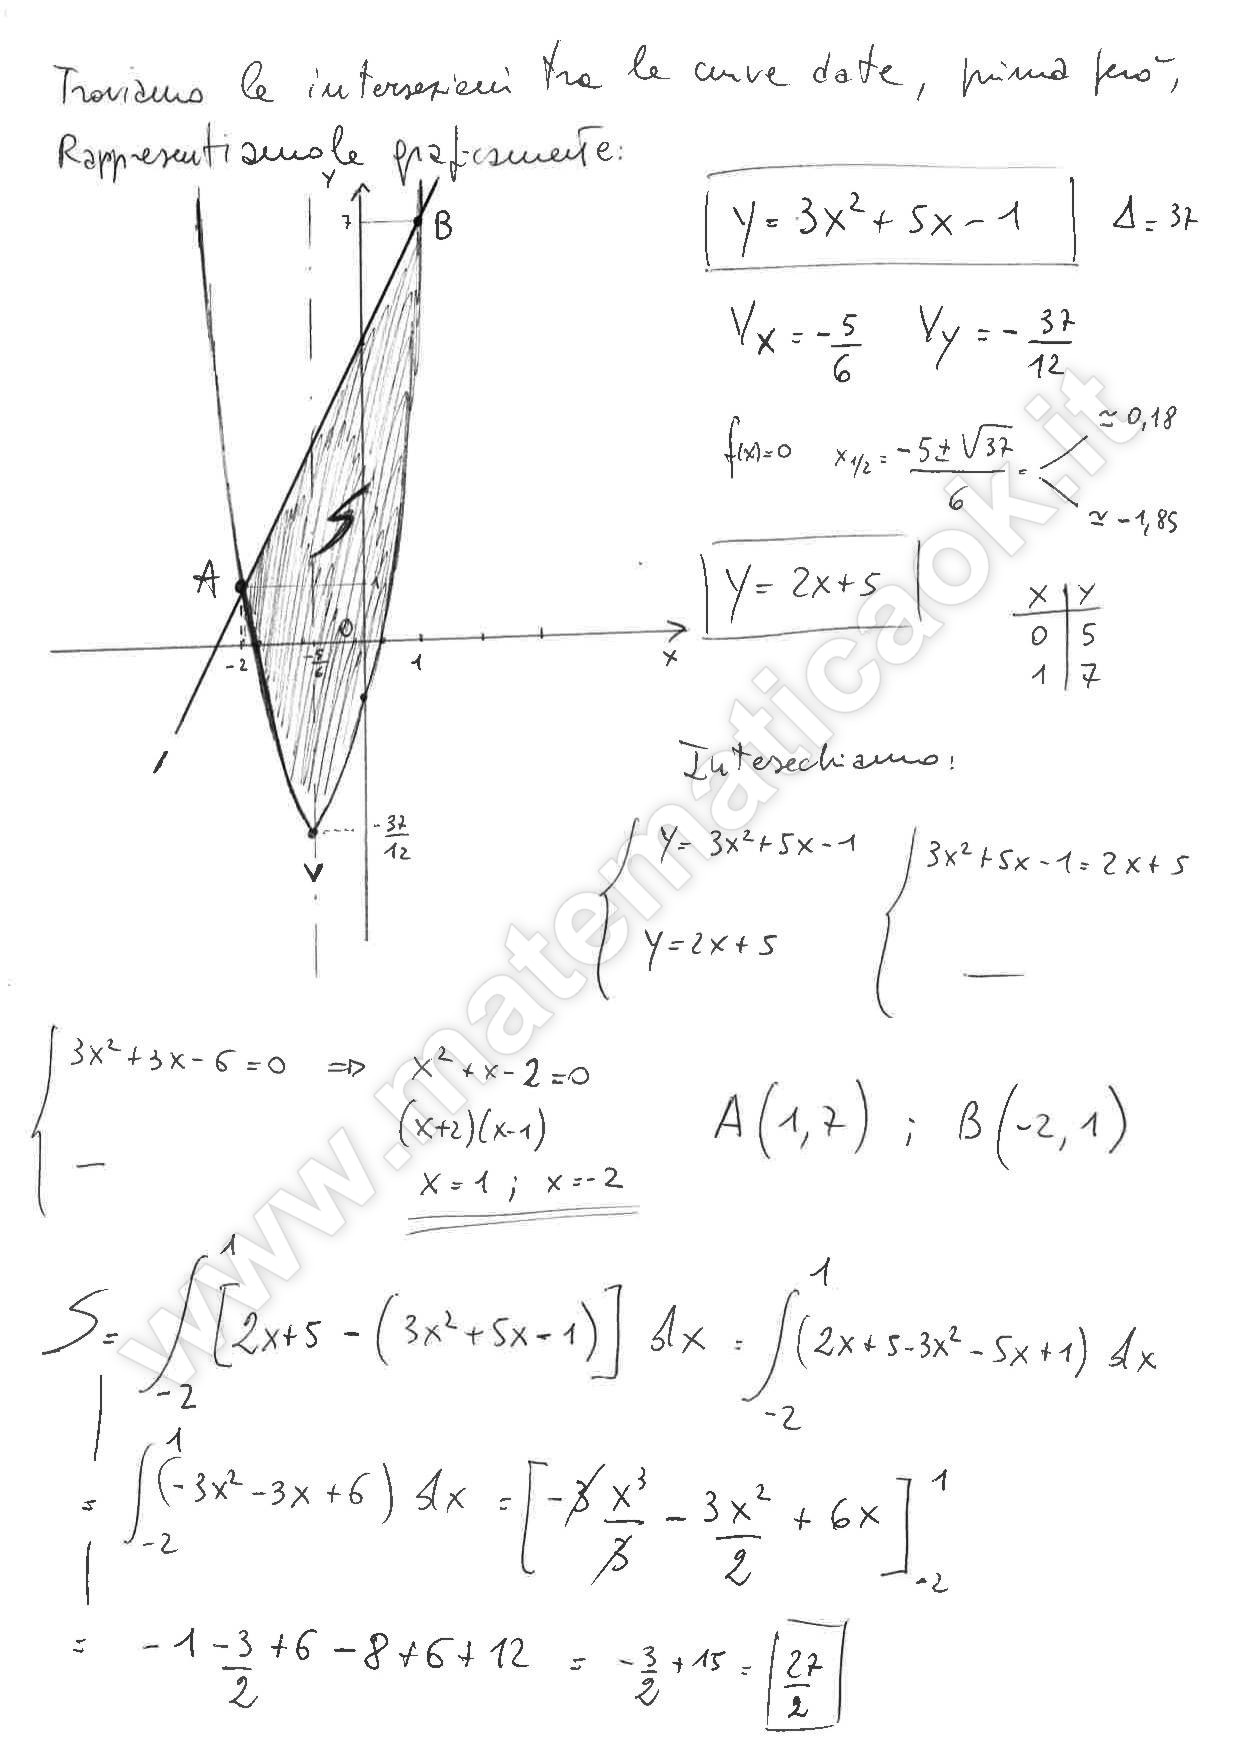 Troviamo le intersezioni tra le curve date, prima però,
Rappresentiamole graficamente:
Y
7
B
A
S
O
-2
-5/6
1
X
-37/12
V
Y = 3x² + 5x - 1
Δ = 37
Vx = -5/6 Vy = -37/12
f(x)=0 x1/2 = (-5 ± √37)/6 = ≃ 0,18
≃ -1,85
Y = 2x + 5
X | Y
0 | 5
1 | 7
Intersechiamo:
{ Y = 3x² + 5x - 1 { 3x² + 5x - 1 = 2x + 5
Y = 2x + 5 —
{ 3x² + 3x - 6 = 0 => x² + x - 2 = 0
(x+2)(x-1)
— x = 1 ; x = -2
A(1,7) ; B(-2,1)
S = ∫₋₂¹ [2x+5 - (3x² + 5x - 1)] dx = ∫₋₂¹ (2x + 5 - 3x² - 5x + 1) dx
= ∫₋₂¹ (-3x² - 3x + 6) dx = [-3 x³/3 - 3x²/2 + 6x]₋₂¹
= -1 - 3/2 + 6 - 8 + 6 + 12 = -3/2 + 15 = 27/2
www.matematicaok.it